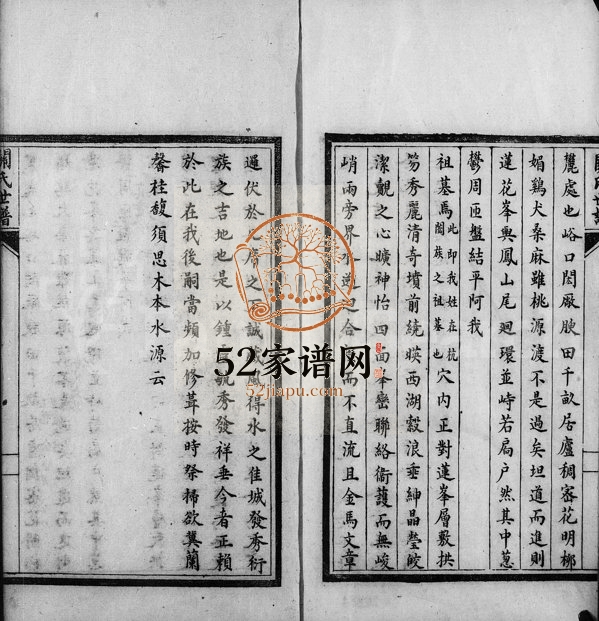 麓處也峪口閎厰腴田千畝居廬稠密花明柳
媚鷄犬桑麻雖桃源渡不是過矣坦道而進則
蓮花峯輿鳳山尾廻環並峙若扃户然其中蔥
鬱周匝盤結平阿我
祖墓焉此即我姓在杭闔族之祖墓也穴内正對蓮峯層數拱
笏秀麗清奇墳前繞暎西湖縠浪垂紳晶瑩皎
潔覩之心曠神怡四面峯巒聯絡衛護而無峻
峭兩旁界水而不直流且金馬文章
邐伏於之下誠風得水之佳城發秀衍
族之吉地也是以鍾毓秀發祥垂今者正賴
於此在我後嗣當頻加修葺按時祭掃欲冀蘭
馨桂馥須思木本水源云
關氏世譜
52家谱网
52jiapu.com